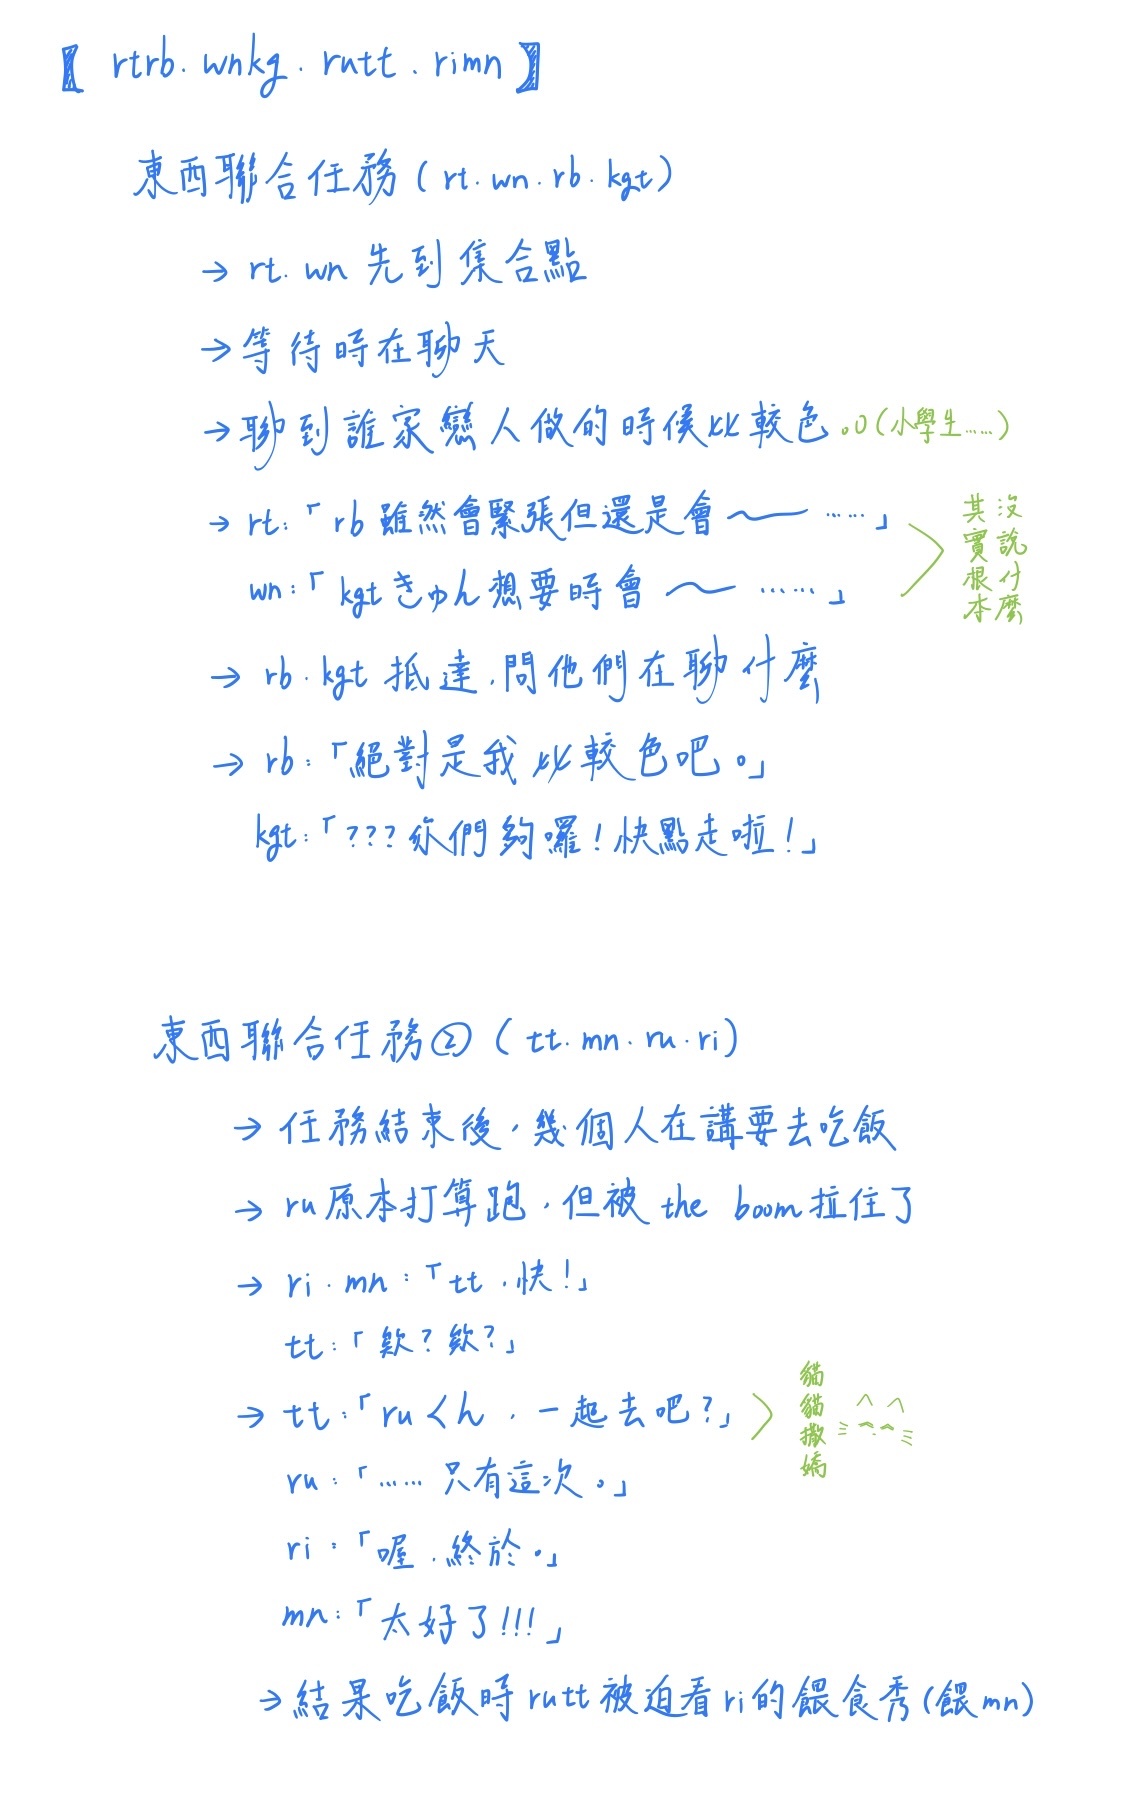 【 rtrb.wnkg.rutt.rimn 】
東西聯合任務(rt.wn.rb.kgt)
→ rt.wn 先到集合點
→ 等待時在聊天
→ 聊到誰家戀人做的時候比較色 .oO(小學生……)
→ rt:「rb 雖然會緊張但還是會～……」
wn:「kgtきゅん想要時會～……」
其實根本
沒說什麼
→ rb.kgt 抵達,問他們在聊什麼
→ rb:「絕對是我比較色吧。」
kgt:「???你們夠囉!快點走啦!」
東西聯合任務②(tt.mn.ru.ri)
→ 任務結束後,幾個人在講要去吃飯
→ ru原本打算跑,但被 the boom拉住了
→ ri.mn:「tt,快!」
tt:「欸?欸?」
→ tt:「ruくん,一起去吧?」
貓貓撒嬌
ru:「……只有這次。」
ri:「喔,終於。」
mn:「太好了!!!」
→ 結果吃飯時rutt被迫看ri的餵食秀(餵mn)